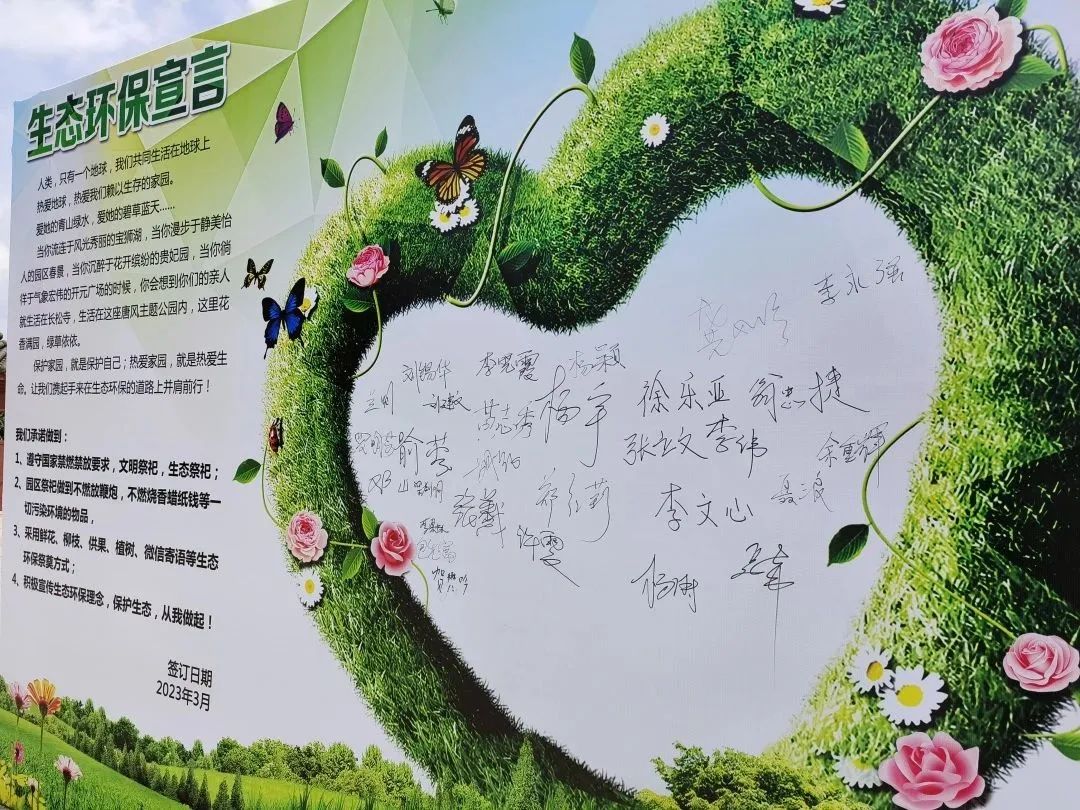 生态环保宣言
人类，只有一个地球，我们共同生活在地球上
热爱地球，热爱我们赖以生存的家园。
爱她的青山绿水，爱她的碧草蓝天……
当你流连于风光秀丽的宝狮湖，当你漫步于静美怡
人的园区春景，当你沉醉于花开缤纷的贵妃园，当你徜
徉于气象宏伟的开元广场的时候，你会想到你们的亲人
就生活在长松寺，生活在这座唐风主题公园内，这里花
香满园，绿草依依。
保护家园，就是保护自己；热爱家园，就是热爱生
命。让我们携起手来在生态环保的道路上并肩前行！
我们承诺做到：
1、遵守国家禁燃禁放要求，文明祭祀，生态祭祀；
2、园区祭祀做到不燃放鞭炮，不燃烧香蜡纸钱等一
切污染环境的物品，
3、采用鲜花、柳枝、供果、植树、微信寄语等生态
环保祭奠方式；
4、积极宣传生态环保理念，保护生态，从我做起！
签订日期
2023年3月
李永强
刘锡华
杨颖
杨宇
徐乐亚
翁忠捷
张立文
李伟
余重辉
李文心
聂浪
许雪